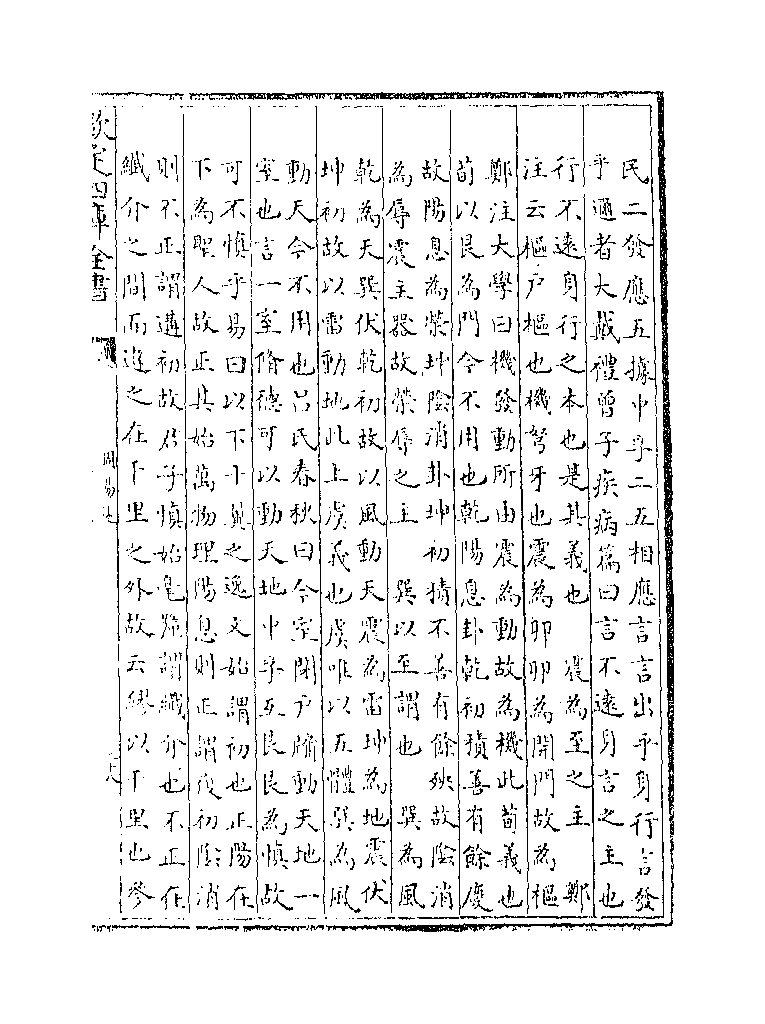 民二發應五據中孚二五相應言言出乎身行言發
乎邇者大戴禮曾子疾病篇曰言不遠身言之主也
行不遠身行之本也是其義也　震為至之主　鄭
注云樞户樞也機弩牙也震為卯卯為開門故為樞
鄭注大學曰機發動所由震為動故為機此荀義也
荀以艮為門今不用也乾陽息卦乾初積善有餘慶
故陽息為榮坤陰消卦坤初積不善有餘殃故陰消
為辱震主器故榮辱之主　巽以至謂也　巽為風
乾為天巽伏乾初故以風動天震為雷坤為地震伏
坤初故以雷動地此上虞義也虞唯以五體巽為風
動天今不用也吕氏春秋曰今室閉户牖動天地一
室也言一室脩德可以動天地中孚互艮艮為慎故
可不慎乎易曰以下十翼之逸文始謂初也正陽在
下為聖人故正其始萬物理陽息則正謂復初陰消
則不正謂遘初故君子慎始毫釐謂纖介也不正在
纖介之間而違之在千里之外故云繆以千里也參
欽定四庫全書
周易述